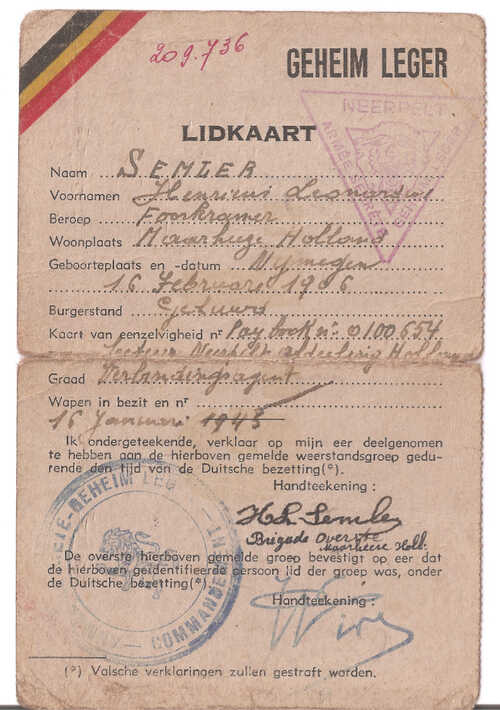 209.736
GEHEIM LEGER
NEERPELT
LIDKAART
Naam SEMLER
Voornamen Henricus Leonardus
Beroep Foorkramer
Woonplaats Maarheeze Holland
Geboorteplaats en -datum Nymegen
16 Februari 1906
Burgerstand Gehuwd
Kaart van eenzelvigheid nr Pay book n° 0100654
secteur Neerpelt afdeeling Holland
Graad Verbindingsagent
Wapen in bezit en nr
16 Januari 1945
Ik ondergeteekende, verklaar op mijn eer deelgenomen
te hebben aan de hierboven gemelde weerstandsgroep gedu-
rende den tijd van de Duitsche bezetting(°).
Handteekening :
H. L. Semler
Brigade Overste
Maarheeze Holl.
De overste hierboven gemelde groep bevestigt op eer dat
de hierboven geïdentifieerde persoon lid der groep was, onder
de Duitsche bezetting(°)
Handteekening :
GEHEIM LEG
COMMANDE
(°) Valsche verklaringen zullen gestraft worden.